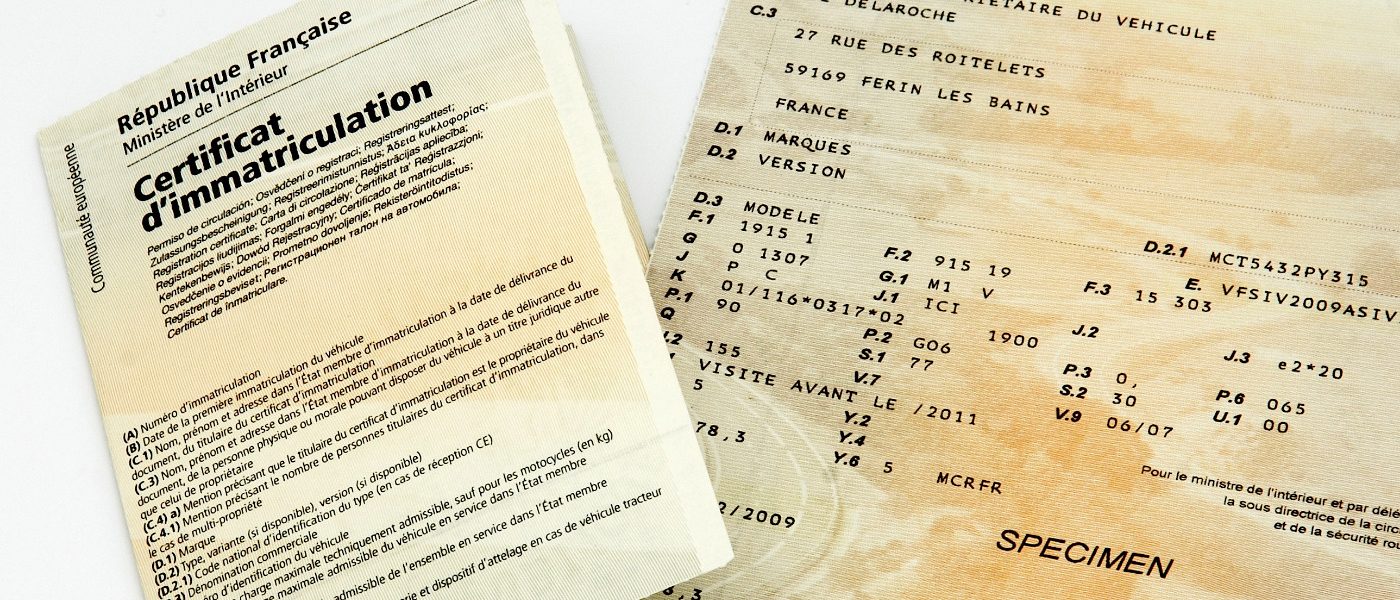 République Française
Ministère de l'Intérieur
Certificat
d'immatriculation
Communauté européenne
Permiso de circulación; Osvědčení o registraci; Registreringsattest;
Zulassungsbescheinigung; Registreerimistunnistus; Άδεια κυκλοφορίας;
Registration certificate; Carta di circolazione; Reģistrācijas apliecība;
Registracijos liudijimas; Forgalmi engedély; Ċertifikat ta' Reġistrazzjoni;
Kentekenbewijs; Dowód Rejestracyjny; Certificado de matrícula;
Osvedčenie o evidencii; Prometno dovoljenje; Rekisteröintitodistus;
Registreringsbeviset; Регистрационен талон на автомобила;
Certificat de înmatriculare.
(A) Numéro d'immatriculation
(B) Date de la première immatriculation du véhicule
(C.1) Nom, prénom et adresse dans l'État membre d'immatriculation à la date de délivrance du
document, du titulaire du certificat d'immatriculation
(C.3) Nom, prénom et adresse dans l'État membre d'immatriculation à la date de délivrance du
document, de la personne physique ou morale pouvant disposer du véhicule à un titre juridique autre
que celui de propriétaire
(C.4) a) Mention précisant que le titulaire du certificat d'immatriculation est le propriétaire du véhicule
(C.4.1) Mention précisant le nombre de personnes titulaires du certificat d'immatriculation, dans
le cas de multi-propriété
(D.1) Marque
(D.2) Type, variante (si disponible), version (si disponible)
(D.2.1) Code national d'identification du type (en cas de réception CE)
Dénomination commerciale
d'identification du véhicule
charge maximale techniquement admissible, sauf pour les motocycles (en kg)
admissible du véhicule en service dans l'État membre
admissible de l'ensemble en service dans l'État membre
et dispositif d'attelage en cas de véhicule tracteur
DU VEHICULE
DELAROCHE
C.3
27 RUE DES ROITELETS
59169 FERIN LES BAINS
FRANCE
D.1 MARQUES
D.2 VERSION
D.2.1 MCT5432PY315
D.3 MODELE
E. VFSIV2009ASIV
F.1 1915 1
F.2 915 19
F.3 15 303
G 0 1307
G.1 M1 V
J P C
J.1 ICI
J.2
J.3 e2*20
K 01/116*0317*02
1900
P.1 90
P.2 GO6
P.3 0,
P.6 065
Q
S.1 77
S.2 30
U.1 00
155
V.7
V.9 06/07
VISITE AVANT LE /2011
5
Y.2
78,3
Y.4
Y.6 5
MCRFR
2/2009
Pour le ministre de l'intérieur et par
la sous directrice de la
et de la sécurité
SPECIMEN